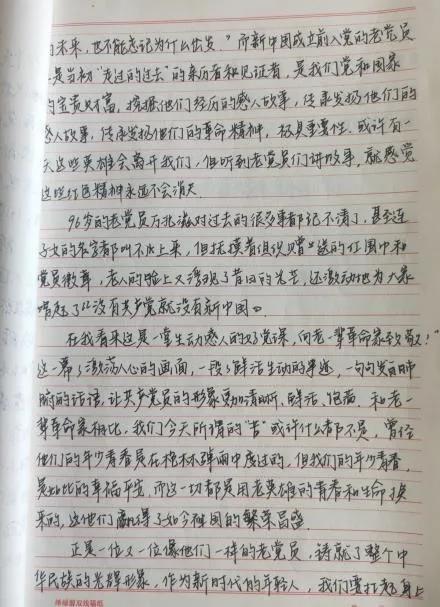 的未来,也不能忘记为什么出发。”而新中国成立前入党的老党员
是当初“走过的过去”的亲历者和见证者,是我们党和国家
的宝贵财富,挖掘他们经历的感人故事,传承发扬他们的
感人故事,传承发扬他们的革命精神,极具重要性。或许有一
天这些英雄会离开我们,但听到老党员们讲故事,就感觉
这些红色精神永远不会消灭
96岁的老党员万兆瀛对过去的很多事都记不清了,甚至连
子女的名字都叫不出上来,但抚摸着组织赠送的红围巾和
党员徽章,老人的脸上又浮现了昔日的光芒,还激动地为大家
唱起了“没有共产党就没有新中国。
在我看来这是一堂生动感人的好党课,向老一辈革命家致敬!”
这一幕幕激荡人心的画面,一段段鲜活生动的事迹,一句句发自肺
腑的话语,让共产党员的形象更加清晰、鲜活、饱满。和老一
辈革命家相比,我们今天所谓的“苦”或许什么都不是,曾经
他们的年少青春是在枪林弹雨中度过的,但我们的年少青春
是如此的幸福平安,而这一切都是用老英雄的青春和生命换
来的,这他们赢得了如今祖国的繁荣昌盛
正是一位又一位像他们一样的老党员,铸就了整个中
华民族的光辉形象,作为新时代的年轻人,我们要扛起身上